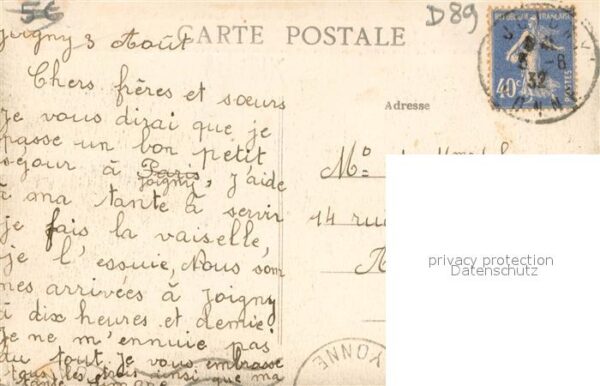 5€
D89
Joigny 3 Août
CARTE POSTALE
REPUBLIQUE FRANÇAISE
40c
POSTES
-8
32
Chers frères et sœurs
Je vous dirai que je
passe un bon petit
séjour à Paris
Joigny, j'aide
à ma tante à servir
je fais la vaiselle,
je l'essuie, Nous som
mes arrivées à Joigny
à dix heures et demie.
Je ne m'ennuie pas
du tout. Je vous embrasse
tous les trois ainsi que ma
tante
Adresse
14 rue
privacy protection
Datenschutz
YONNE